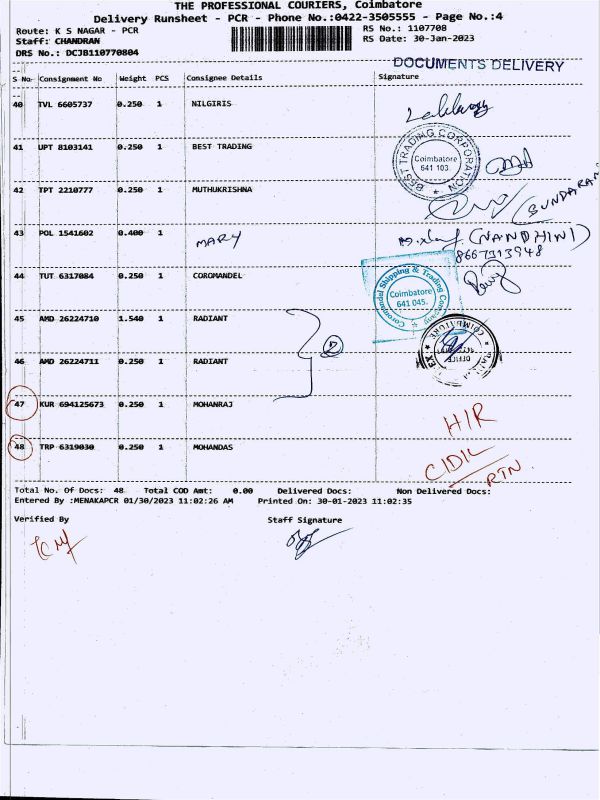 THE PROFESSIONAL COURIERS, Coimbatore
Delivery Runsheet - PCR - Phone No.:0422-3505555 - Page No.:4
Route: K S NAGAR - PCR RS No.: 1107708
Staff: CHANDRAN RS Date: 30-Jan-2023
DRS No.: DCJB110770804
DOCUMENTS DELIVERY
S No Consignment No Weight PCS Consignee Details Signature
40 TVL 6605737 0.250 1 NILGIRIS
41 UPT 8103141 0.250 1 BEST TRADING
BEST TRADING CORPORATION
Coimbatore
641 103
42 TPT 2210777 0.250 1 MUTHUKRISHNA
(SUNDARAM
43 POL 1541602 0.400 1 MARY
(NANDHINI)
8667313948
44 TUT 6317084 0.250 1 COROMANDEL
Coromandel Shipping & Trading Company
Coimbatore
641 045.
45 AMD 26224710 1.540 1 RADIANT
2
COIMBATORE
OFFICE
46 AMD 26224711 0.250 1 RADIANT
47 KUR 694125673 0.250 1 MOHANRAJ
H/R
48 TRP 6319030 0.250 1 MOHANDAS
RTN.
Total No. Of Docs: 48 Total COD Amt: 0.00 Delivered Docs: Non Delivered Docs:
Entered By :MENAKAPCR 01/30/2023 11:02:26 AM Printed On: 30-01-2023 11:02:35
Verified By Staff Signature